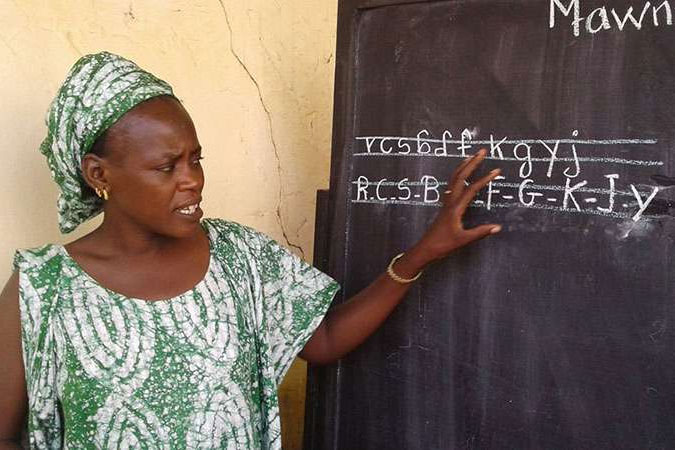 Mawn
rcsbdf kgyj
R-C-S-B- -F-G-K-J-y